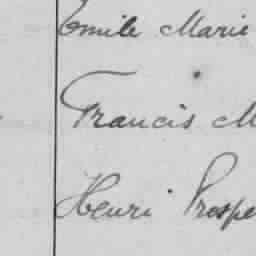 Emile Marie
Francis M
Henri Prospe